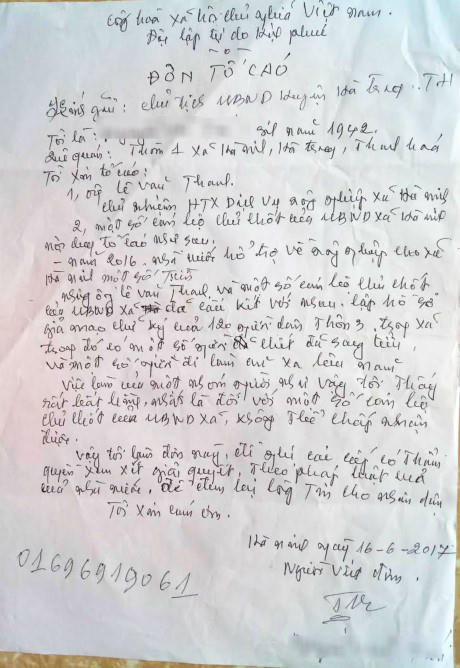 Cộng hoà xã hội chủ nghĩa Việt nam.
Độc lập tự do hạnh phúc
ĐƠN TỐ CÁO
Kính gửi: chủ tịch UBND huyện Hà Trung.. TH
Tôi là: sinh năm 1942.
Quê quán: Thôn 1 xã Hà Ninh, Hà trung, Thanh hoá
Tôi xin tố cáo:
1, ông lê văn Thanh.
chủ nhiệm HTX Dịch vụ nông nghiệp xã Hà Ninh
2, một số cán bộ chủ chốt của UBND xã Hà Ninh
nội dung tố cáo như sau:
- năm 2016. nhà nước hỗ trợ về nông nghiệp cho xã
Hà Ninh một số tiền
nhưng ông lê văn Thanh và một số cán bộ chủ chốt
của UBND xã đã cấu kết với nhau. lập hồ sơ
giả mạo chữ ký của 120 người dân Thôn 3. trong xã
trong đó có một số người chết đã sang tiểu,
và một số người đi làm ăn xa lâu năm
việc làm của một nhóm người như vậy tôi Thấy
rất bất bình, nhất là đối với một số cán bộ
chủ chốt của UBND xã, không Thể chấp nhận
được.
vậy tôi làm đơn này, đề nghị các cấp có Thẩm
quyền xem xét giải quyết, Theo pháp luật của
nhà nước, để đem lại lòng Tin cho nhân dân
Tôi xin cám ơn.
Hà Ninh ngày 16-6-2017
Người viết đơn.
01696919061